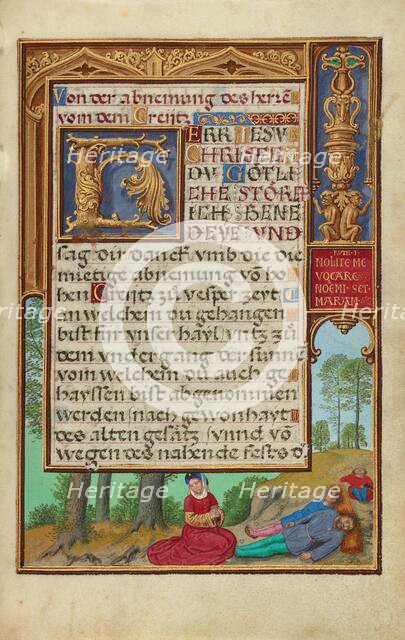 Von der abnemung des herrē
vom dem Creijtz
HERR IESV
CHRISTE
DV GÖTLI
CHE STÖRE
ICH BENE
DEYE VUND
sag dir danck vmb die die
mietige abnemung vō ho
hen Creijtz zu vesper zeyt
jn welchem du gehangen
bist für vnser hayl vntz zu
dem vndergang der sunne
vom welchem du auch ge
hayssen bist abgenommen
werden nach gewonhayt
des alten gesätz vnnd vō
wegen des nahende fests d
RVTH·I·
NOLITE ME
VOCARE
NOEMI SET
MARVAM
Heritage
Heritage
Heritage
Heritage
Heritage
Heritage
Heritage
Heritage